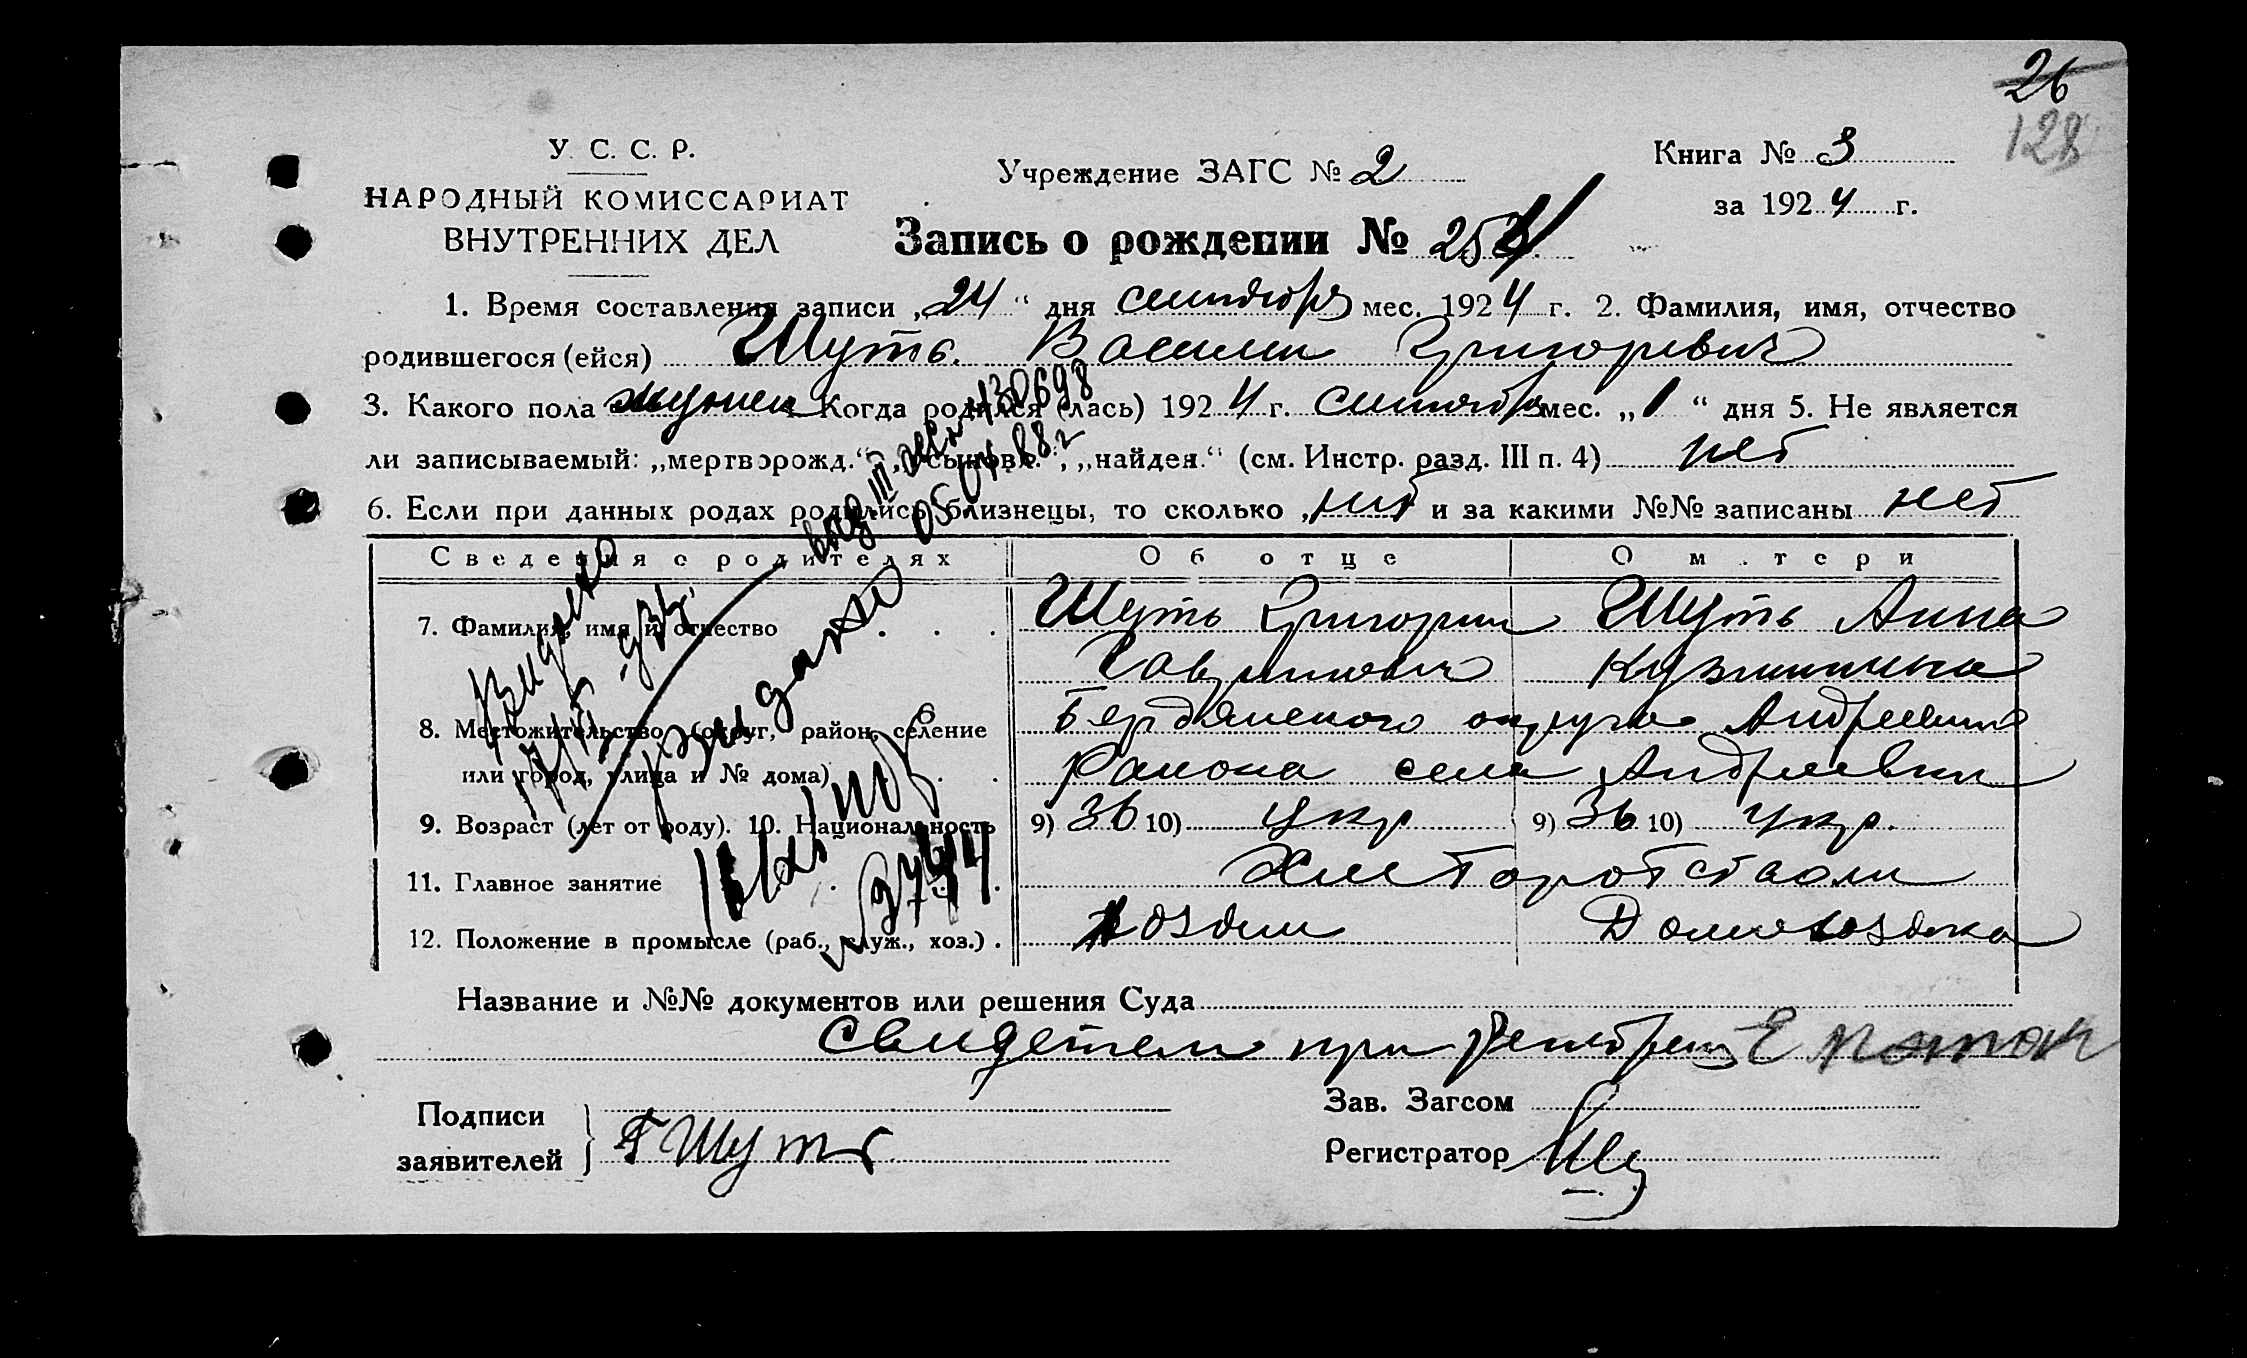 26
128
У. С. С. Р.
НАРОДНЫЙ КОМИССАРИАТ
ВНУТРЕННИХ ДЕЛ
Учреждение ЗАГС № 2
Книга № 3
за 1924 г.
Запись о рождении № 254.
1. Время составления записи „24“ дня сентября мес. 1924 г. 2. Фамилия, имя, отчество
родившегося (ейся) Шуть. Василии Григоревич
3. Какого пола мужск 4. Когда родился (лась) 1924 г. сентября мес. „1“ дня 5. Не является
ли записываемый: „мертворожд.“, „усыновл.“, „найден.“ (см. Инстр. разд. III п. 4) нет
6. Если при данных родах родились близнецы, то сколько нет и за какими №№ записаны нет
Сведения о родителях Об отце О м тери
7. Фамилия, имя и отчество Шуть Григории Шуть Анна
Гаврилович Кузминична
8. Местожительство (округ, район, селение Бердянского округа Андреевского
или город, улица и № дома) Района села Андреевки
9. Возраст (лет от роду). 10. Национальность 9) 36 10) укр 9) 36 10) укр.
11. Главное занятие
12. Положение в промысле (раб., служ., хоз.) хозяин Домохозяка
Название и №№ документов или решения Суда
Свидетели при
Подписи
заявителей Г Шуть
Зав. Загсом
Регистратор
Видано
05 04.88 г